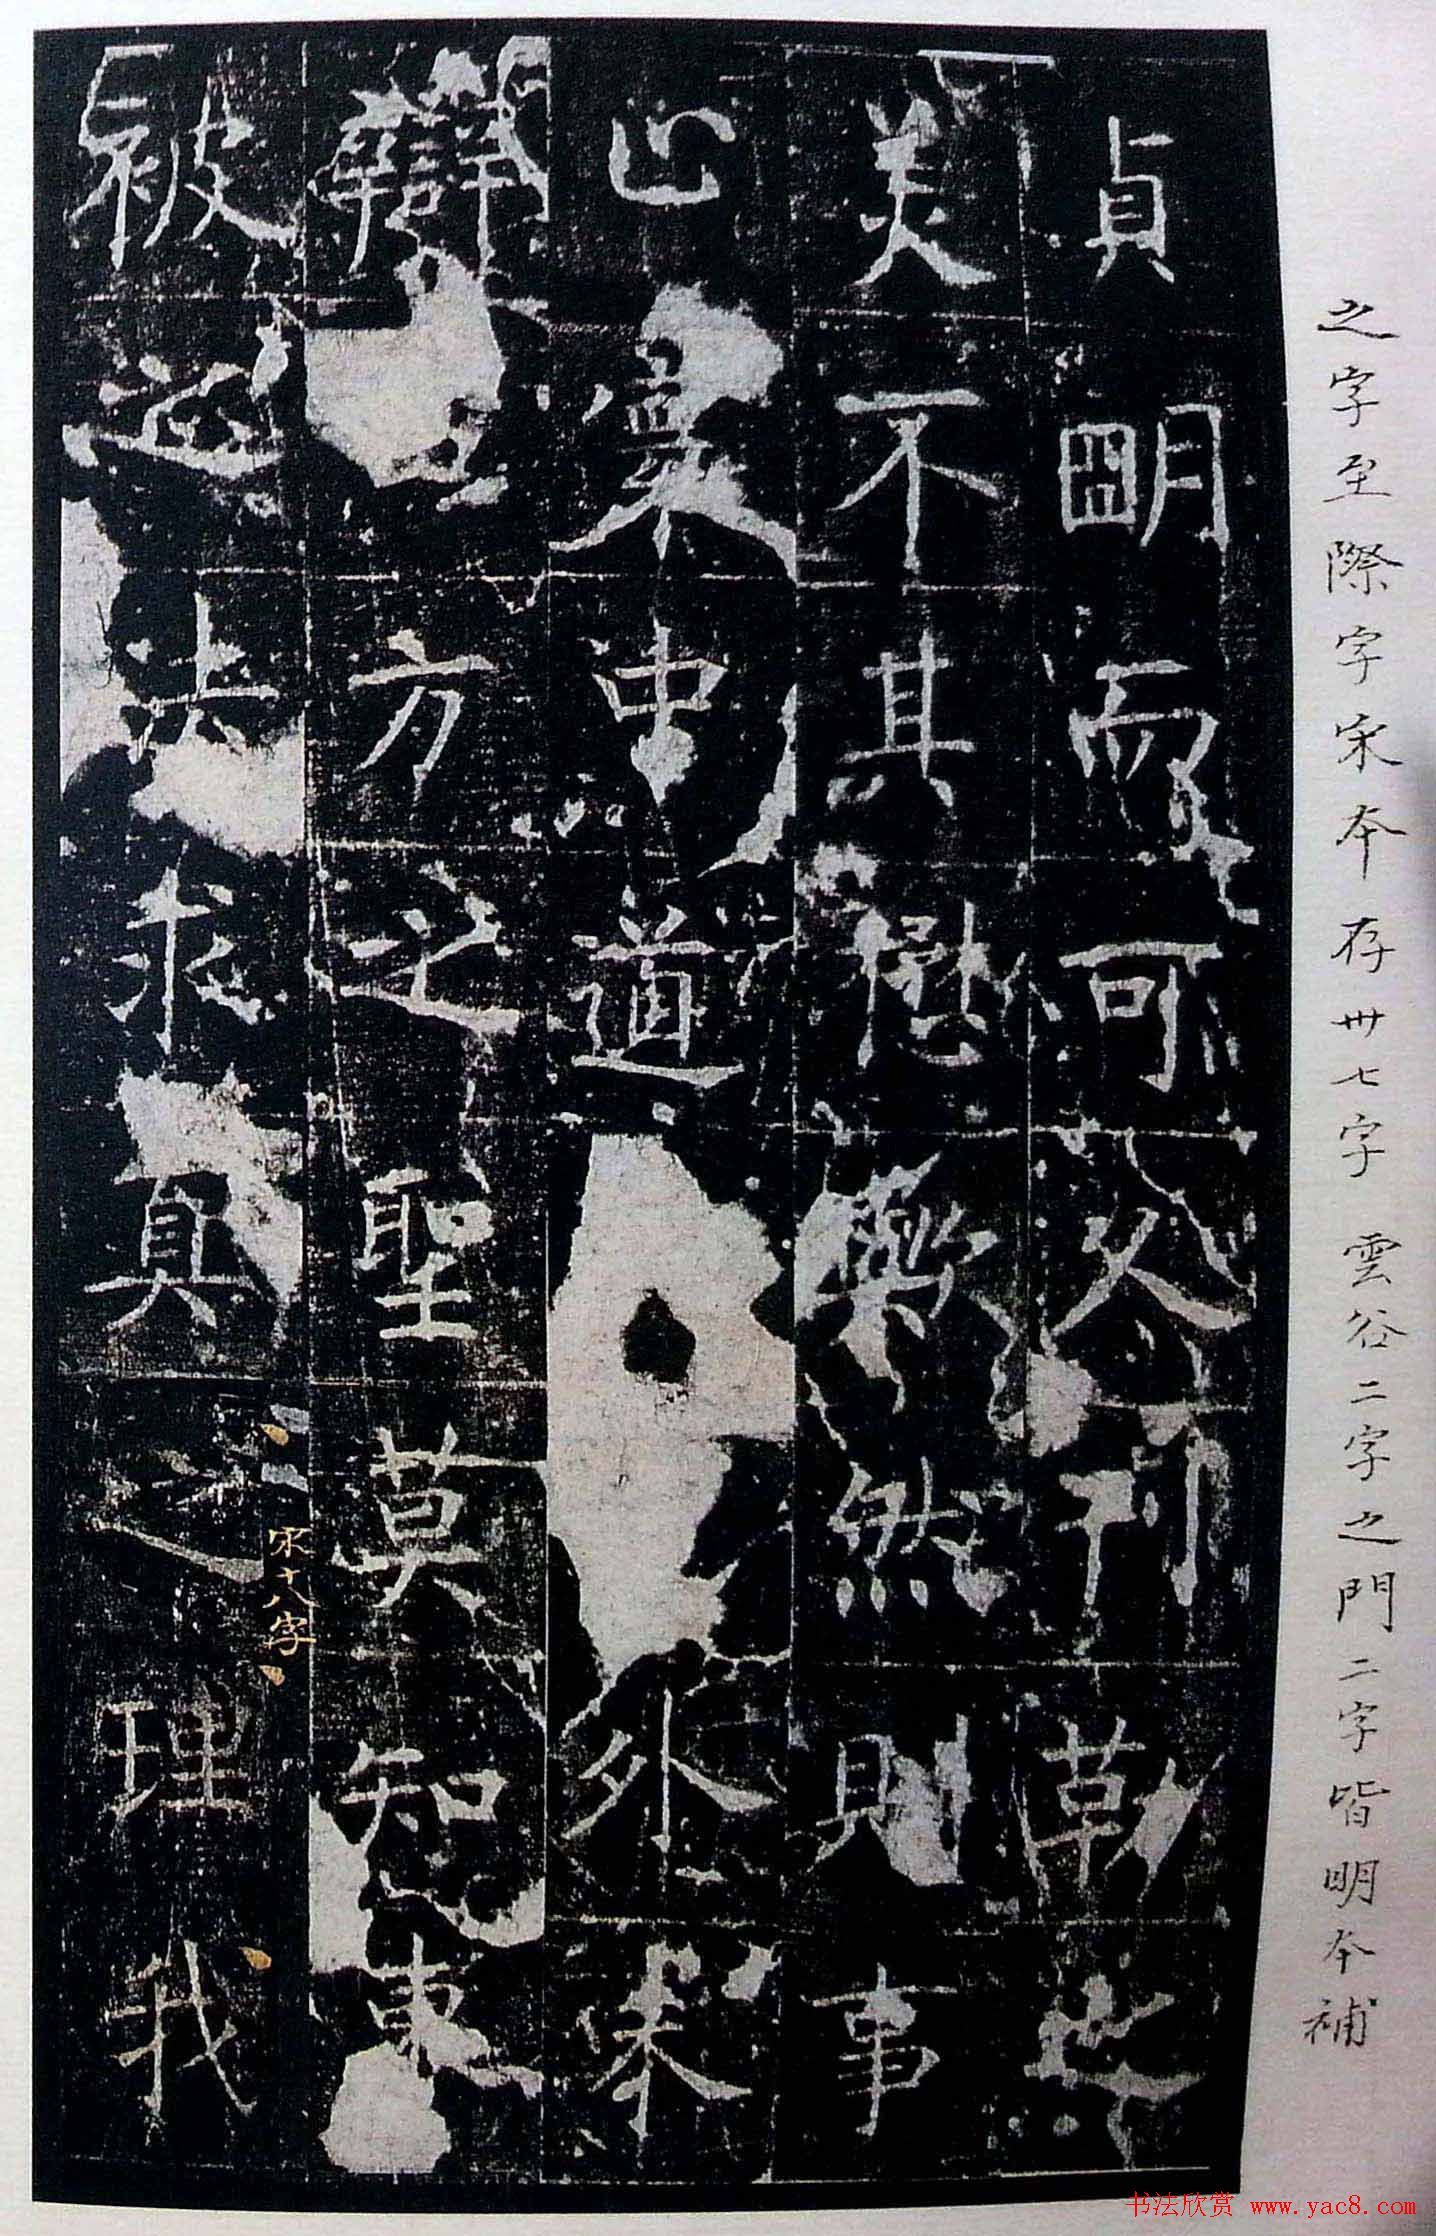 之字至際字宋本存卅七字 雲谷二字之門二字皆明本補
貞朙而可久刊勒
美不其慰歟然則事
心象中道外来
辯方之聖莫知東
被迹法求真之理我
宋十八字
书法欣赏 www.yac8.com